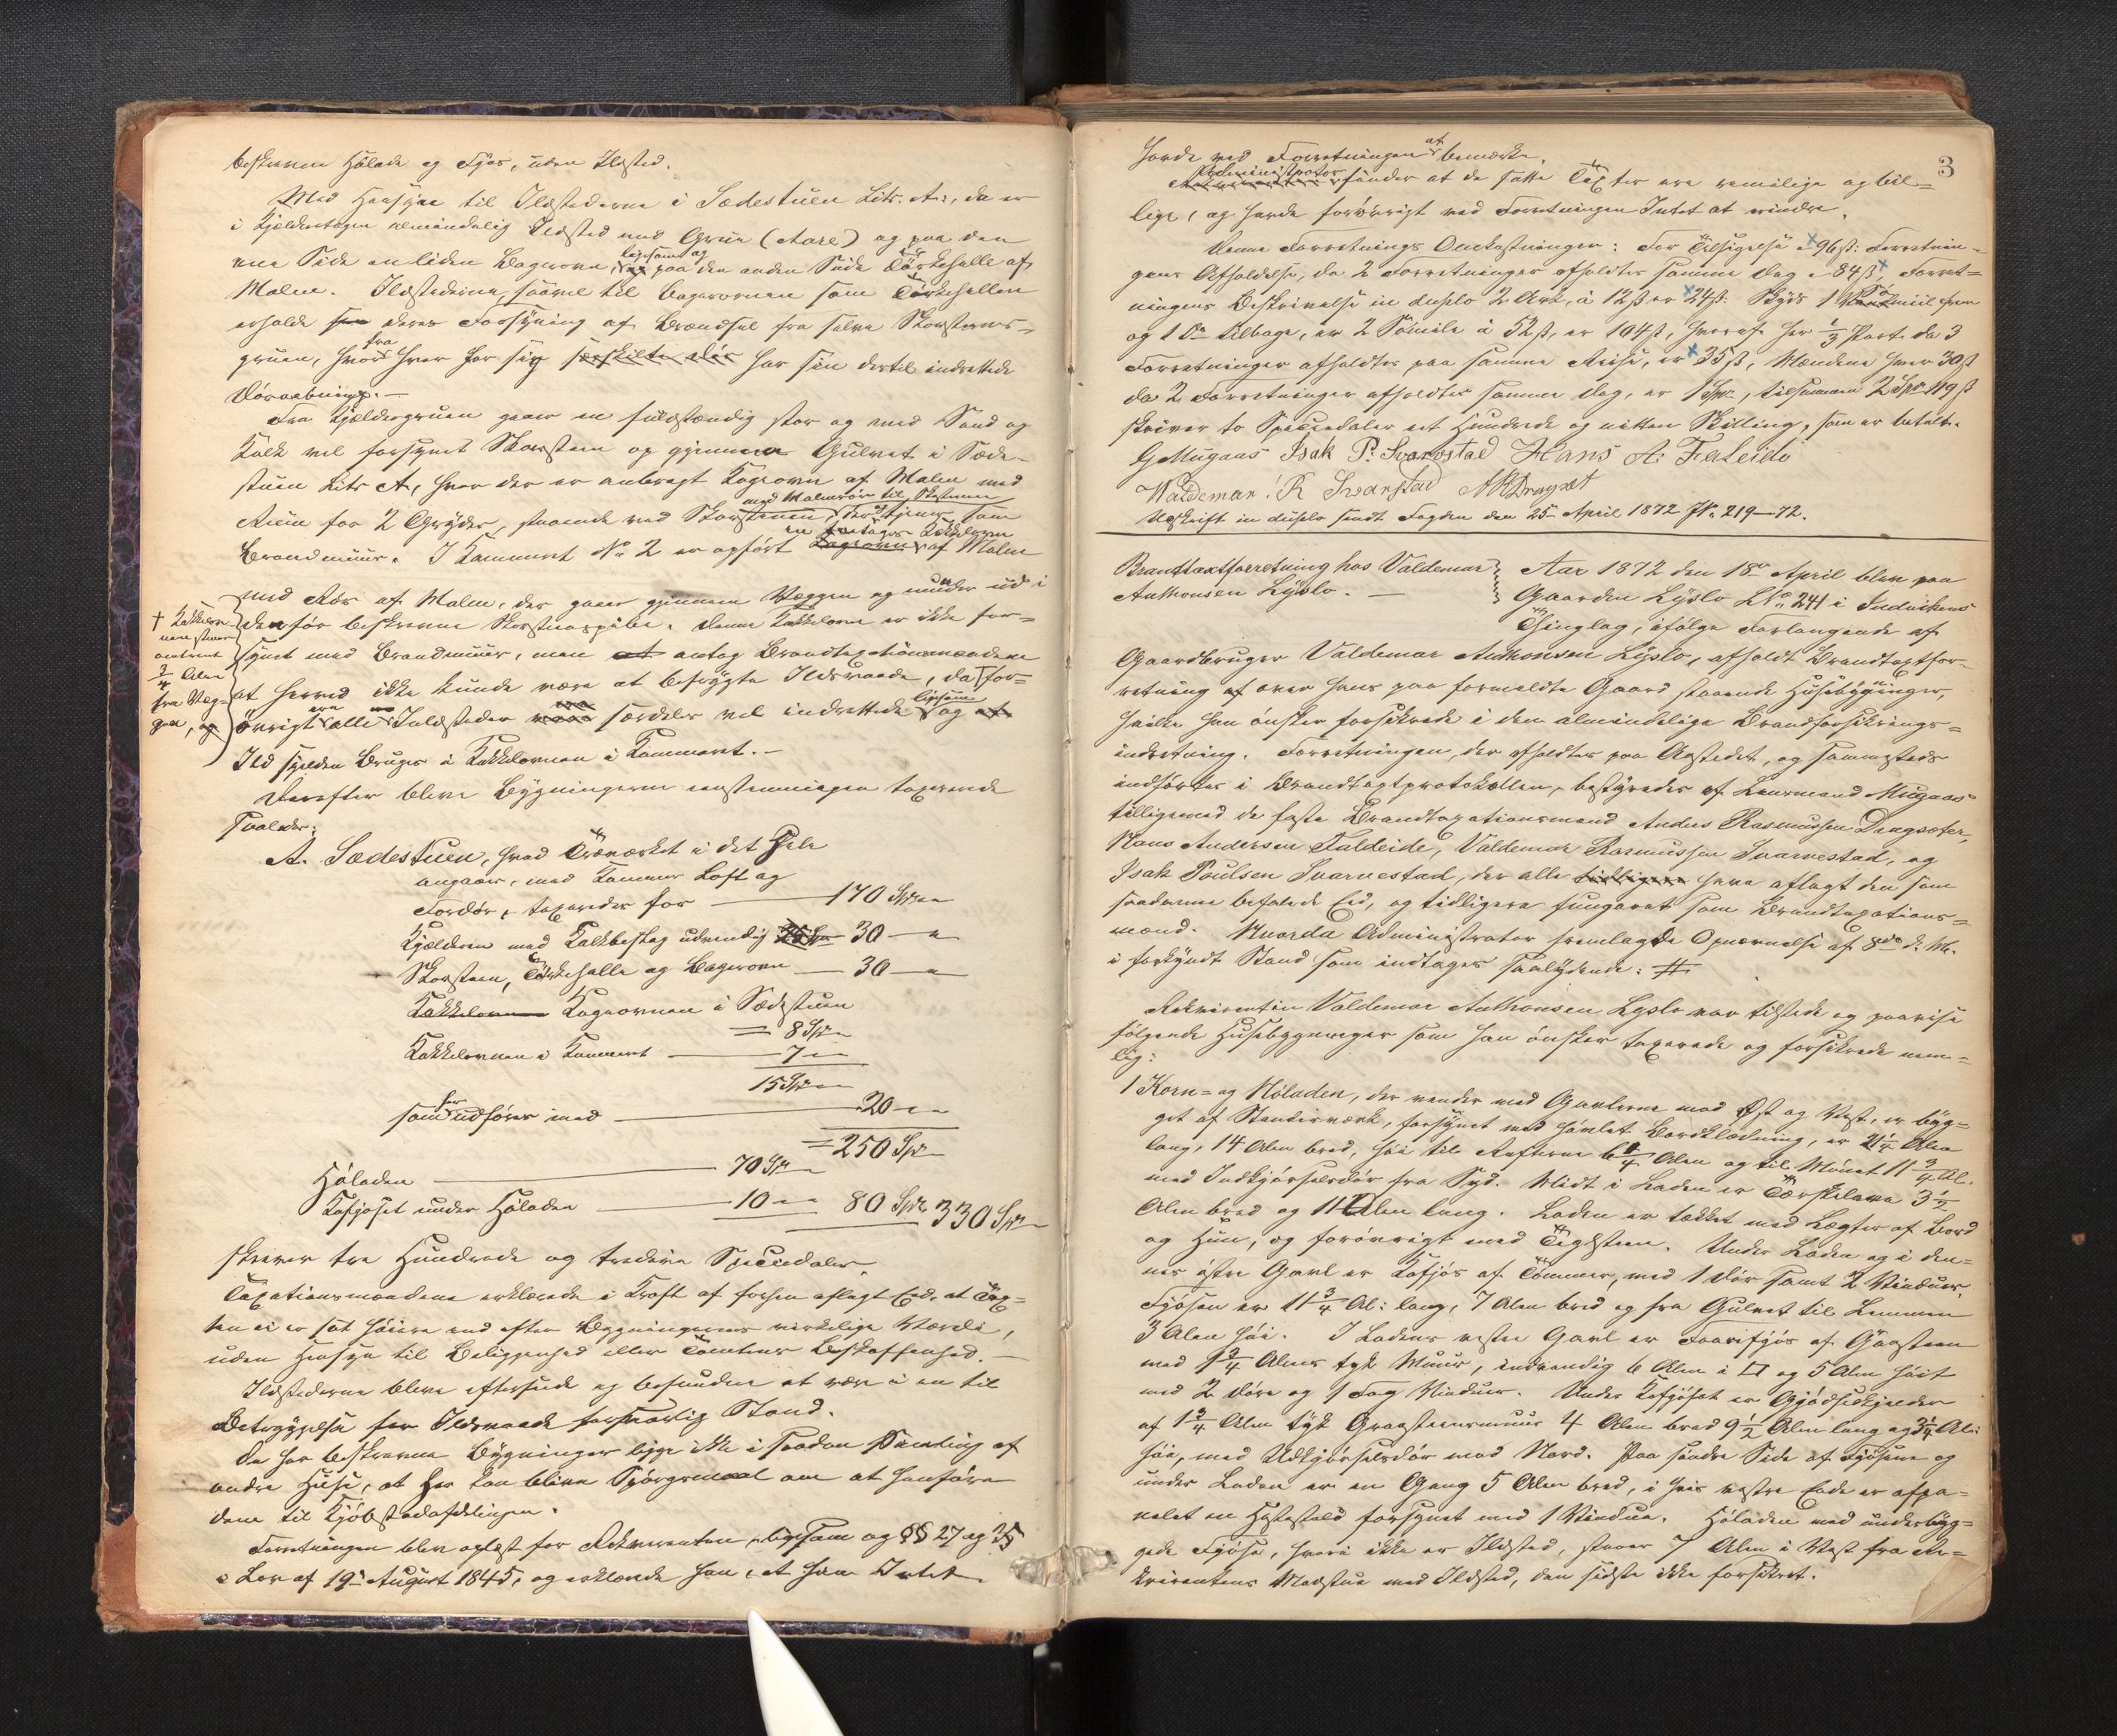 beskrevne Hølade og Fjøs, uden Ildsted.
Med Hensyn til Ildstederne i Sædestuen Litr. A., da er
i Kjælderetagen almindelig Ildsted med Grue (Aare) og paa den
ene Side en liden Bagerovn, ligesom og paa den anden Side Tørkehelle af
Malm. Ildstederne, saavel til Bagerovnen som Tørkehellen
erholde deres Forsyning af Brændsel fra selve Skorsteens-
gruen, hvorfra hver for sig særskilte dør har sin dertil indrettede
Døraabning.
Fra Kjældergruen gaaer en fuldstændig stor og med Sand og
Kalk vel forsynet Skorsteen op gjennem Gulvet i Sæde-
stuen Litr A, hvor der er anbragt Kogeovn af Malm med
Ruin for 2 Gryder, staaende ved Skorstenen med Malmrør til Skorstenen, der tjener som
Brandmuur. I Kammeret No 2 er opført Bagerovn en toetages Kakkelovn af Malm
med Rør af Malm, der gaaer gjennem Væggen og munder ud i
den før beskrevne Skorsteenspibe. Denne Kakkelovn er ikke for-
synet med Brandmuur, men at antog Brandtaxationsmændene
at herved ikke kunde være at befrygte Ildsvaade, da for-
øvrigt ere alle Ildsteder vare ere særdeles vel indrettede ligesom og af
+ Kakkelov-
nen staar
omtrent
3/4 Alen
fra Væg-
gen, og
Ild sjelden bruges i Kakkelovnen i Kammeret.
Derefter bleve Bygningerne eenstemmigen taxerede
saaledes:
A. Sædestuen, hvad Træværket i det Hele
angaaer, med Kammer Loft og
Fordør, taxeredes for 170 Spd
Kjælderen med Kalkbeslag udvendig 30 "
Skorsteen, Tørkehelle og Bagerovn 30 "
Kakkelovnen Kogeovnen i Sædestuen
= 8 Spd
Kakkelovnen i Kammeret 7 "
15 Spd
som her udføres med 20 "
= 250 Spd
Høladen 70 Spd
Kofjøset under Høladen 10 " 80 Spd 330 Spd
skriver tre Hundrede og tredive Speciedaler.
Taxationsmændene erklærede i Kraft af forhen aflagt Eed, at Tax-
ten ei er sat høiere end efter Bygningernes virkelige Værdi,
uden Hensyn til Beliggenhed eller Tomtens Beskaffenhed.
Ildstederne bleve efterseede og befundne at være i en til
Betryggelse for Ildsvaade forsvarlig Stand.
De her beskrevne Bygninger ligge ikke i saadan Samling af
andre Huse, at her kan blive Spørgsmaal om at henføre
dem til Kjøbstadafdelingen.
Forretningen blev oplæst for Rekvirenten, ligesom og §§ 27 og 35
i Lov af 19de August 1845, og erklærede han, at han Intet
3
havde ved Forretningen at bemærke.
Administrator finder at de satte Taxter ere rimelige og bil-
lige, og havde forøvrigt ved Forretningen Intet at erindre.
Denne Forretnings Omkostninger: For Tilsigelse 96 ß: Forretnin-
gens Afholdelse, da 2 Forretninger afholdtes samme Dag 84 ß, Forret-
ningens Beskrivelse in duplo 2 Ark, à 12 ß er 24 ß: Skyds 1 Sømiil frem
og 1 Do tilbage, er 2 Sømile à 52 ß, er 104 ß, hvoraf her 1/3 Part da 3
Forretninger afholdtes paa samme Reise, er 35 ß, Mændene hver 30 ß
da 2 Forretninger afholdtes samme Dag, er 1 Spd, tilsammen 2 Spd 119 ß
skriver to Speciedaler et Hundrede og nitten Skilling, som er betalt.
GMugaas Isak P. Svarvstad Hans A: Faleide
Waldemar: R Svarstad ARDragset
Udskrift in duplo sendt Fogden den 25 April 1872 JN: 219-72.
Brandtaxtforretning hos Valdemar
Anthonsen Lyslo.
Aar 1872 den 18de April blev paa
Gaarden Lyslo LNo 241 i Indvikens
Thinglag, ifølge Forlangende af
Gaardbruger Valdemar Anthonsen Lyslo, afholdt Brandtaxtfor-
retning af over hans paa formeldte Gaard staaende Huusbygninger,
hvilke han ønsker forsikrede i den almindelige Brandforsikrings-
indretning. Forretningen, der afholdtes paa Aastedet, og sammesteds
indførtes i Brandtaxtprotokollen, bestyredes af Lensmand Mugaas
tilligemed de faste Brandtaxationsmænd Anders Rasmussen Dragsæter,
Hans Andersen Faleide, Valdemar Rasmussen Svarvestad, og
Isak Poulsen Svarvestad, der alle tidligere have aflagt den som
saadanne befalede Eed, og tidligere fungeret som Brandtaxations-
mænd. Anordn Administrator fremlagde Opnævnelse af 8de d. M.
i forkyndt Stand som indtages saalydende: #
Rekvirenten Valdemar Anthonsen Lyslo var tilstede og paaviste
følgende Huusbygninger som han ønsker taxerede og forsikrede nem-
lig:
1 Korn- og Høladen, der vender med Gavlerne mod Øst og Vest, er byg-
get af Stenderværk, forsynet med høvlet Bordklædning, er 21 1/4 Alen
lang, 14 Alen bred, høi til Rafterne 6 1/4 Alen og til Mønet 11 3/4 Al.
med Indkjørselsdør fra Syd. Midt i Laden er Tærskelave 3 1/2
Alen bred og 11 Alen lang. Laden er tækket med Lægter af Bord
og Hun, og forøvrigt med Teglsteen. Under Laden og i den-
nes østre Gavl er Kofjøs af Tømmer, med 1 Dør samt 2 Vinduer,
Fjøsen er 11 3/4 Al: lang, 7 Alen bred og fra Gulvet til Lemmen
3 Alen høi. I Ladens vestre Gavl er Faarefjøs af Graasteen
med 1 3/4 Alens tyk Muur, indvendig 6 Alen i □ og 5 Alen høit
med 2 Døre og 1 Fag Vinduer. Under Kofjøset er Gjødselkjælder
af 1 3/4 Alen tyk Graasteensmuur 4 Alen bred 9 1/2 Alen lang og 3 1/4 Al:
høi, med Udkjørselsdør mod Nord. Paa søndre Side af Fjøsene og
under Laden er en Gang 5 Alen bred, i hvis vestre Ende er afpa-
nelet en Hestestald forsynet med 1 Vindue. Høladen med underbyg-
gede Fjøse, hvori ikke er Ildsted, staaer 7 Alen i Vest fra Re-
kvirentens Madstue med Ildsted, den sidste ikke forsikret.